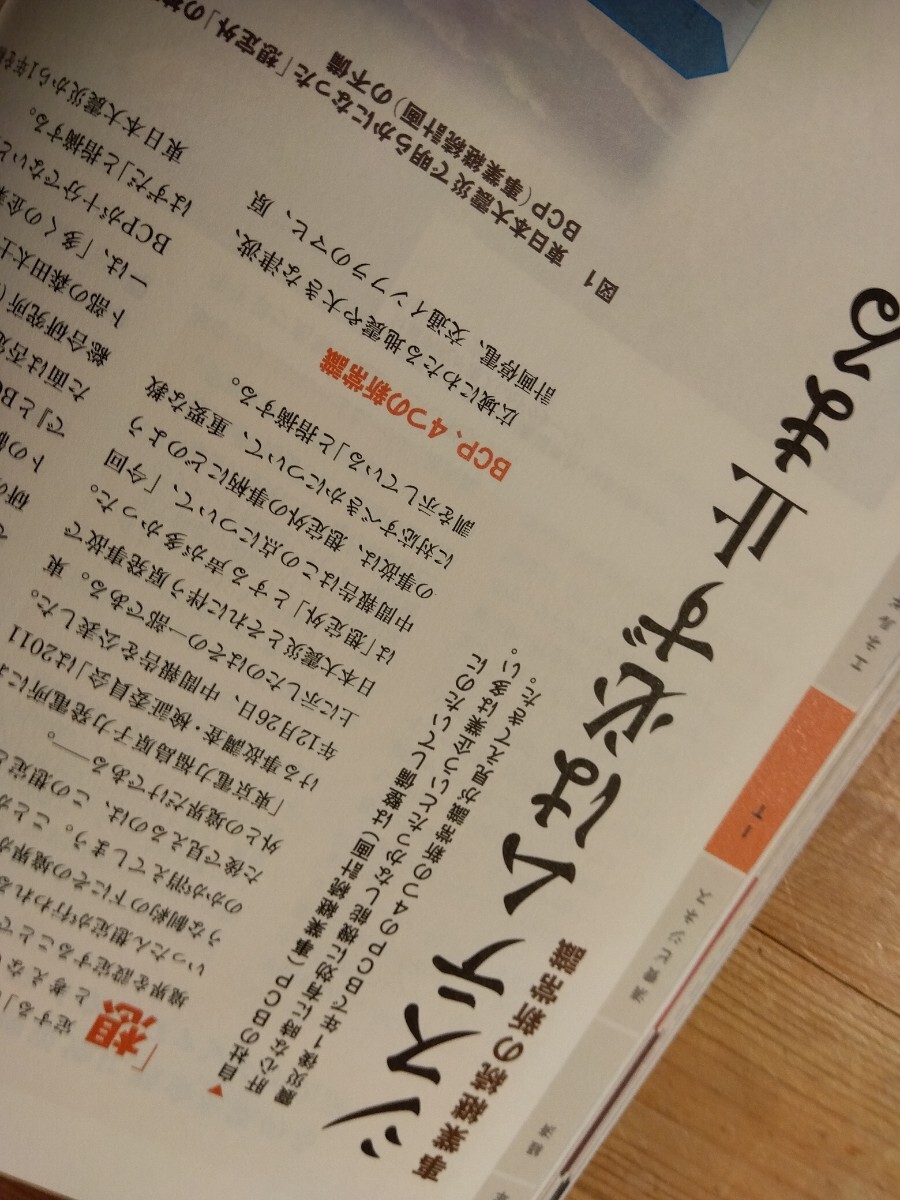 事業継続の新常識
システムは必ず止まる
自社のBCP(事業継続計画)は整備していたのに
肝心な時に有効に機能しなかったという企業は多い。
震災後1年でBCPの4つの新常識が見えてきた。
「想定する」
と考えな
境界を設定することで
いったん想定が行われる
うな制約の下にその境界が
のかが消えてしまう。ことが
た後で見えるのは、この想定と
外との境界だけである――。
「東京電力福島原子力発電所にお
ける事故調査・検証委員会」は2011
年12月26日、中間報告を公表した。
上に示したのはその一部である。東
日本大震災とそれに伴う原発事故で
は「想定外」とする声が多かった。
中間報告はこの点について、「今回
の事故は、想定外の事柄にどのよう
に対応すべきかについて、重要な教
訓を示している」と指摘する。
BCP、4つの新常識
広域にわたる地震や大きな津波、
計画停電、交通インフラのマヒ、原
で
研の
トの
で」とBC
た面は否定
総合研究所(
ト部の森田太士
一は、「多くの企業
BCPが十分でないと
はずだ」と指摘する。
東日本大震災から1年を
図1 東日本大震災で明らかになった「想定外」の
BCP(事業継続計画)の不備
IT